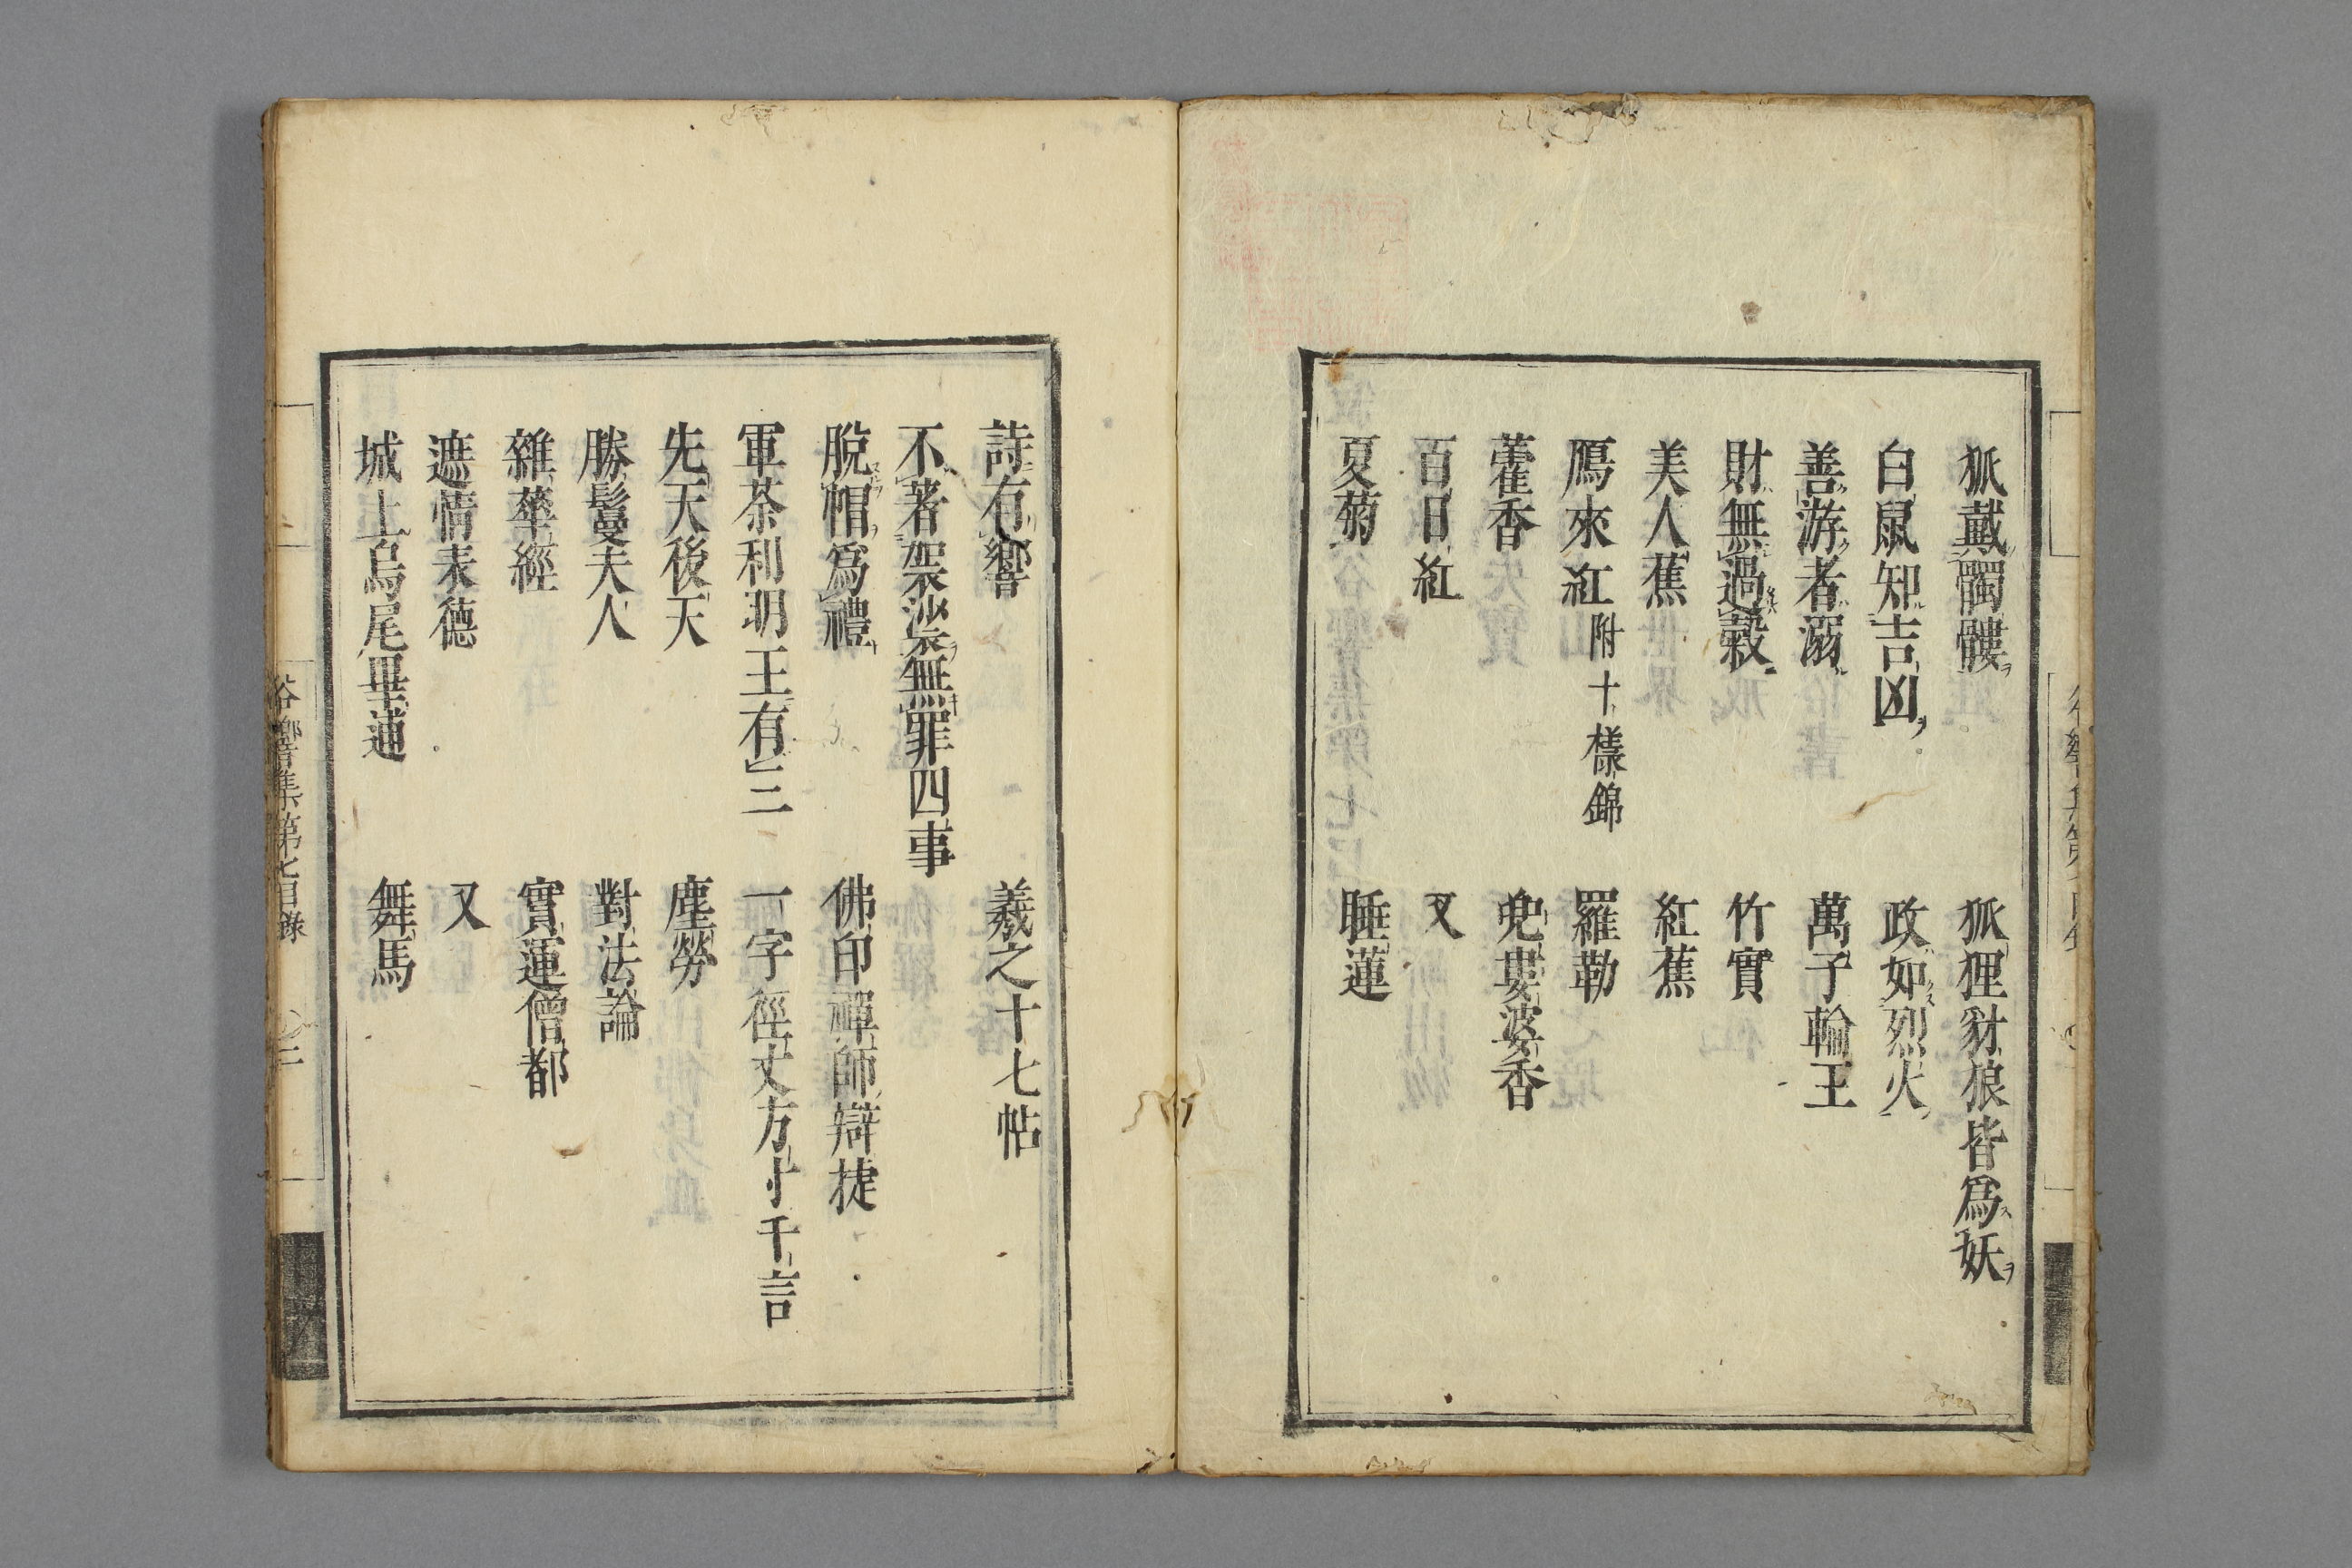 狐戴髑髏 狐狸豺狼皆爲妖
白鼠知吉凶 政如烈火
善游者溺 萬子輪王
財無過穀 竹實
美人蕉 紅蕉
鴈來紅 附十樣錦 羅勒
藿香 兜婁婆香
百日紅 又
夏菊 睡蓮
詩有響 羲之十七帖
不著袈裟無罪四事
脫帽爲禮 佛印禪師辯捷
軍荼利明王有三 一字徑丈方寸千言
先天後天 塵勞
勝鬘夫人 對法論
雜華經 實運僧都
遮情表德 又
城上烏尾畢逋 舞馬
谷響集第七目錄 二